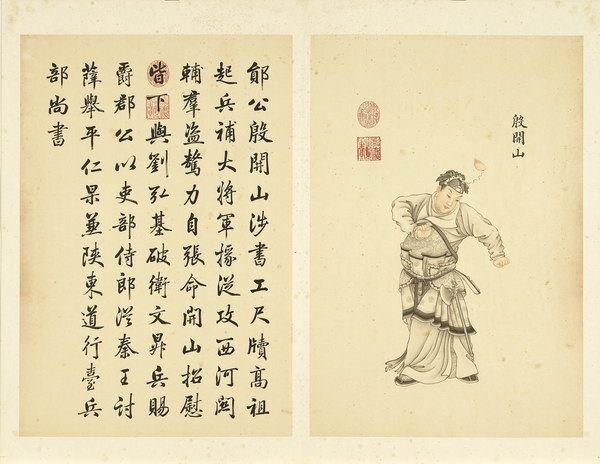 殷開山
鄖公殷開山涉書工尺牘高祖
起兵補大將軍掾從攻西河關
輔羣盜驁力自張命開山招慰
皆下與劉弘基破衛文昇兵賜
爵郡公以吏部侍郎從秦王討
薛舉平仁果兼陝東道行臺兵
部尚書